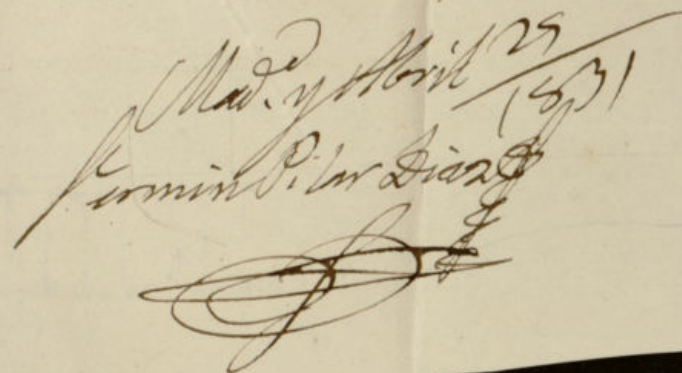 Mad.d y Abril 29/1831
Fermin Pilar Diaz